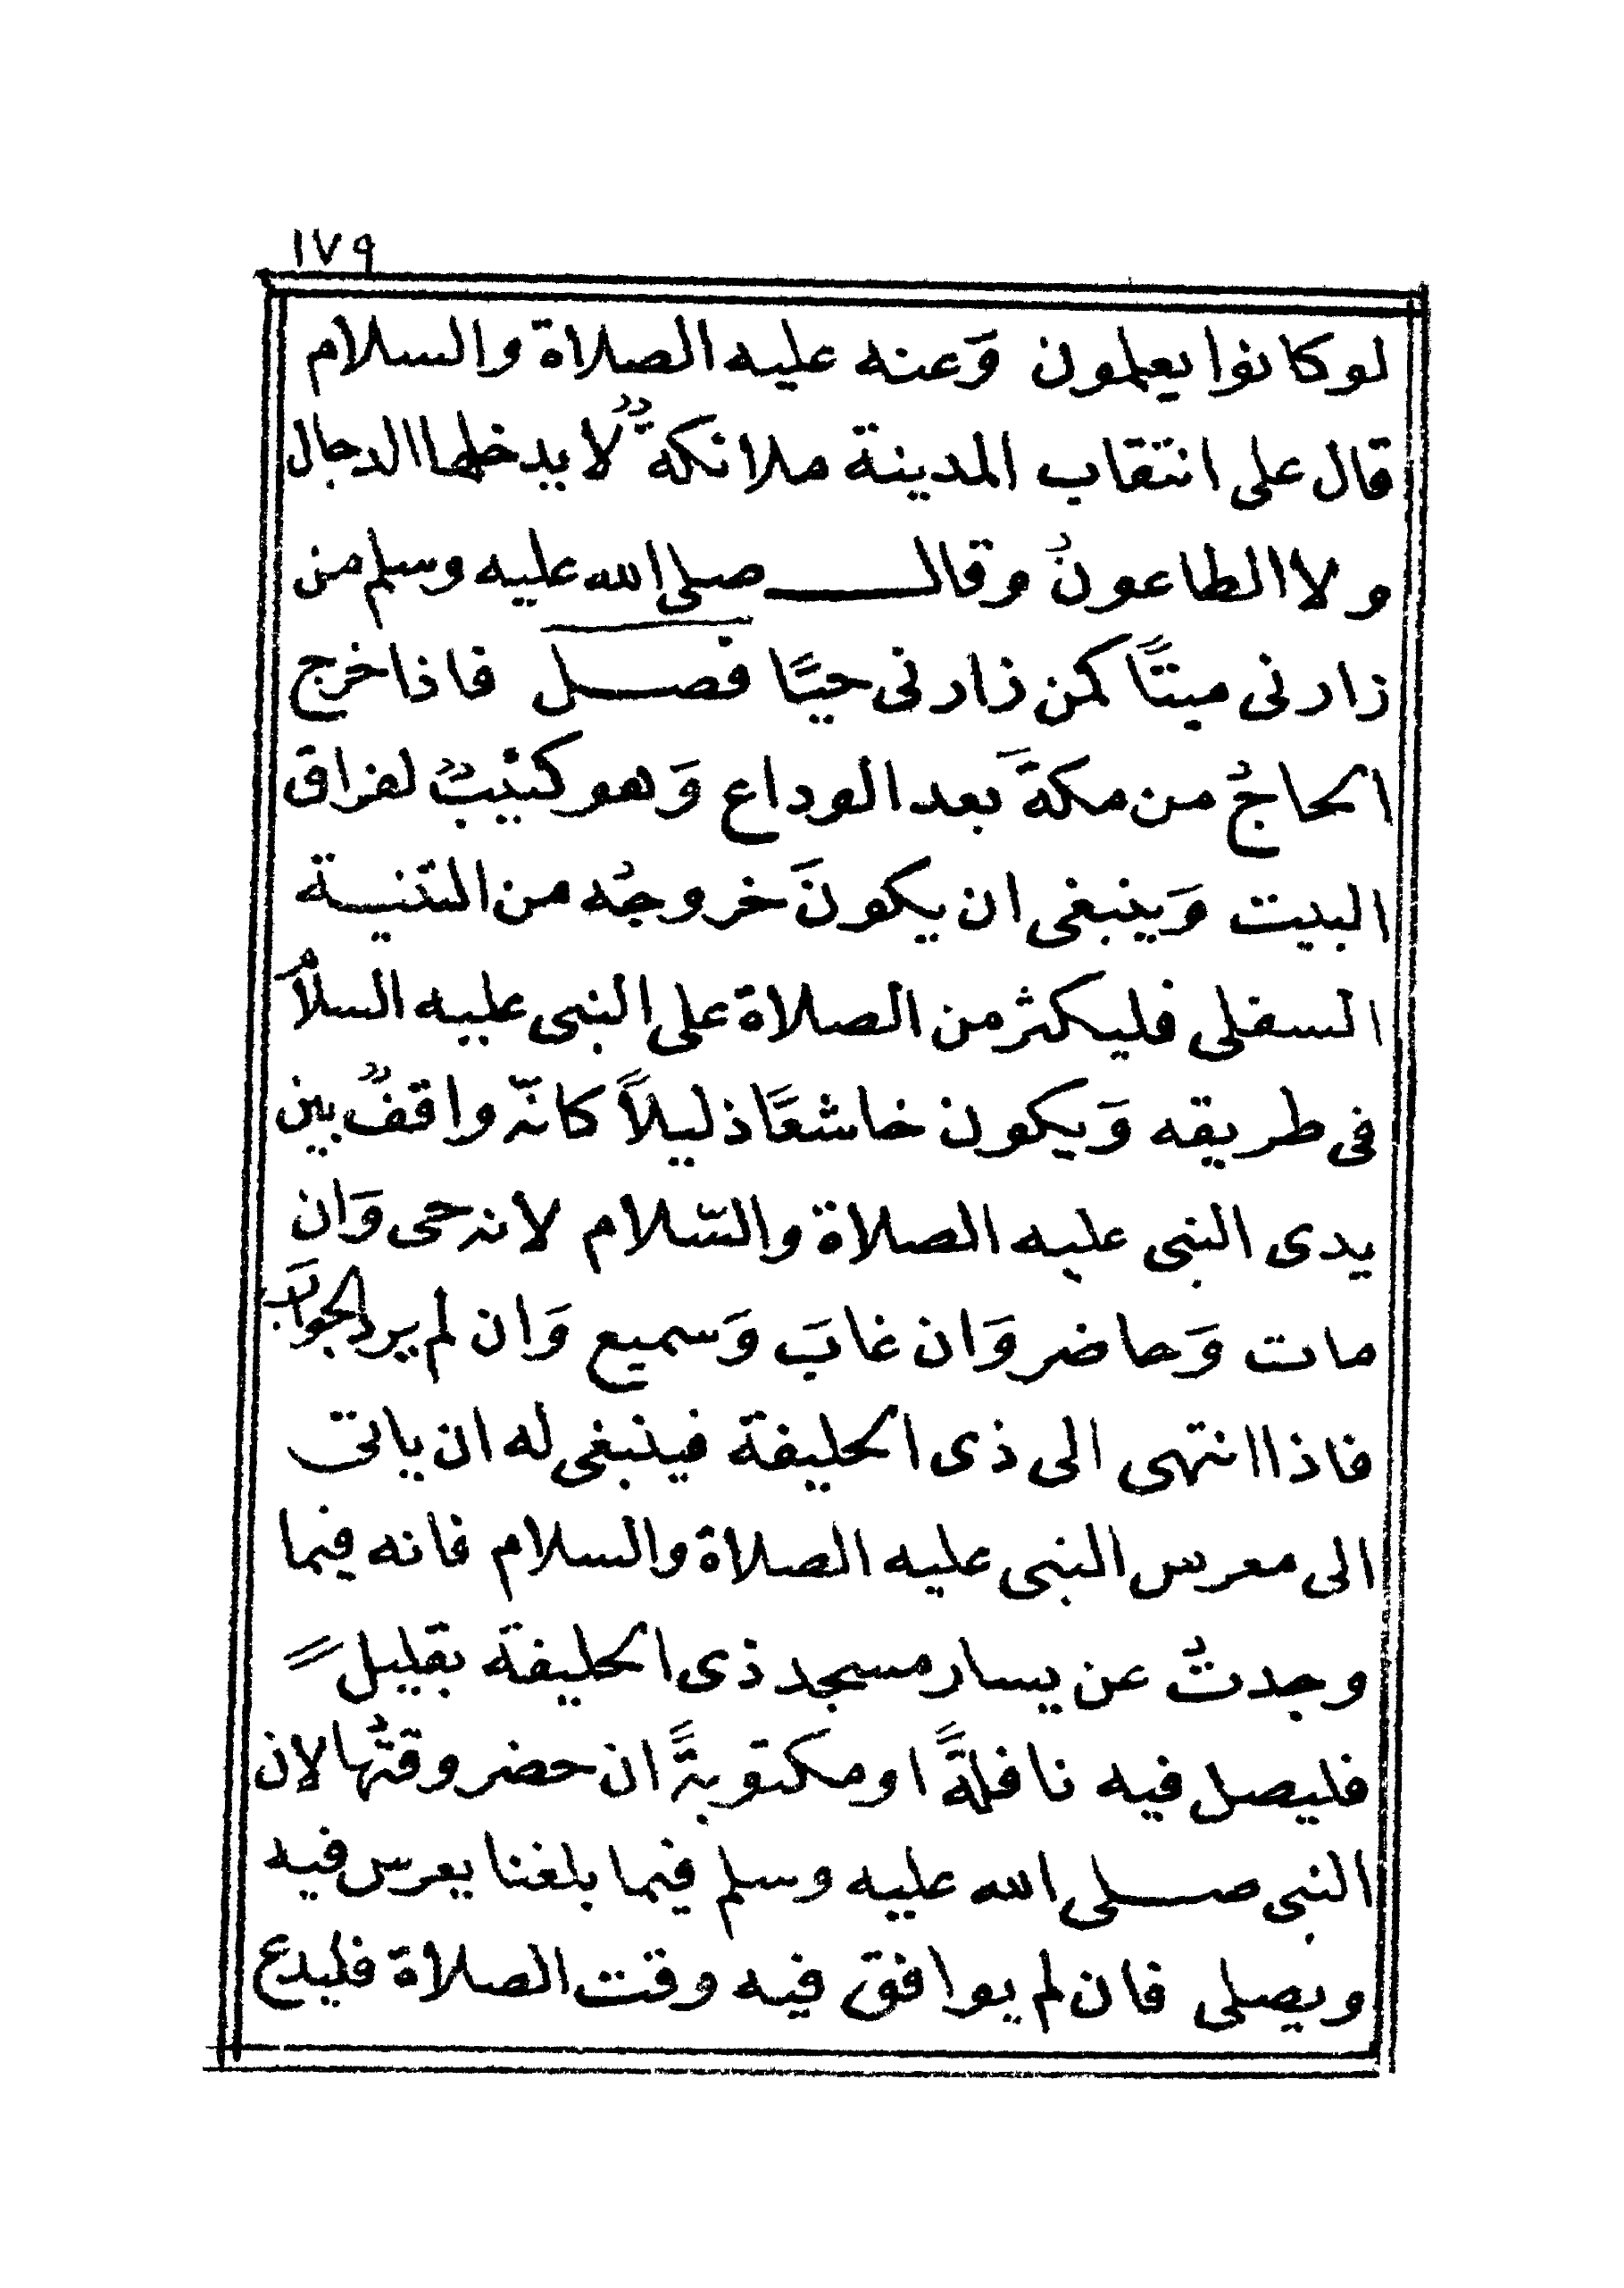 ١٧٩
لو كانوا يعلمون وَعنه عليه الصلاة والسلام
قال على انتقاب المدينة ملائكةٌ لا يدخلها الدجال
ولا الطاعونُ وقال صلى الله عليه وسلم من
زارنى ميتًا كمن زارنى حيًا فصل فاذا خرج
الحاجُ من مكةَ بعد الوداع وَهو كئيبٌ لفراق
البيت وَينبغى ان يكونَ خروجُه من الثنية
السفلى فليكثر من الصلاة على النبى عليه السلامُ
فى طريقه وَيكون خاشعًا ذليلاً كانّه واقفٌ بين
يدى النبى عليه الصلاة والسّلام لانه حى وَان
مات وَحاضر وَان غابَ وَسميع وَان لم يرد الجوابَ
فاذا انتهى الى ذى الحليفة فينبغى له ان ياتى
الى معرس النبى عليه الصلاة والسلام فانه فيما
وجدتُ عن يسار مسجد ذى الحليفة بقليل
فليصل فيه نافلةً او مكتوبةً ان حضر وقتُها لان
النبى صلى الله عليه وسلم فيما بلغنا يعرس فيه
ويصلى فان لم يوافق فيه وقت الصلاة فليدع